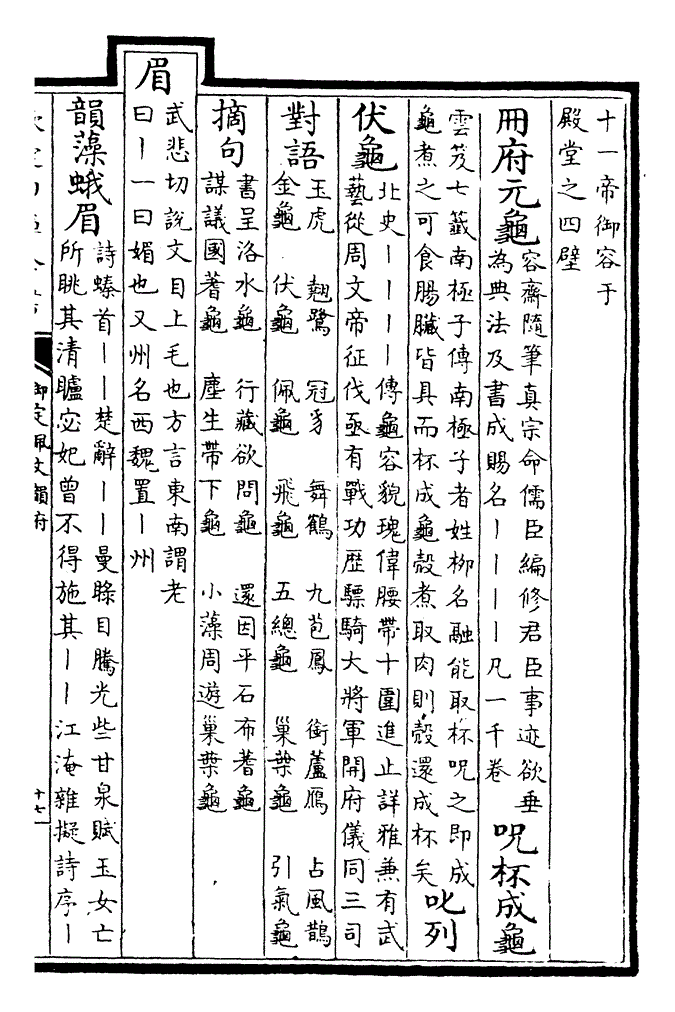 十一帝御容于
殿堂之四壁
冊府元龜
容齋隨筆真宗命儒臣編修君臣事迹欲垂
為典法及書成賜名丨丨丨丨凡一千卷
呪杯成龜
雲笈七籤南極子傳南極子者姓柳名融能取杯呪之即成
龜煮之可食腸臟皆具而杯成龜殼煮取肉則殼還成杯矣
叱列
伏龜
北史丨丨丨丨傳龜容貌瑰偉腰帶十圍進止詳雅兼有武
藝從周文帝征伐亟有戰功歷驃騎大將軍開府儀同三司
對語
玉虎 翹鷺 冠豸 舞鶴 九苞鳳 銜蘆鴈 占風鵲
金龜 伏龜 佩龜 飛龜 五總龜 巢葉龜 引氣龜
摘句
書呈洛水龜 行藏欲問龜 還因平石布蓍龜
謀議國蓍龜 塵生帶下龜 小藻周遊巢葉龜
眉
武悲切說文目上毛也方言東南謂老
曰丨一曰媚也又州名西魏置丨州
韻藻蛾眉
詩螓首丨丨楚辭丨丨曼睩目騰光些甘泉賦玉女亡
所眺其清矑宓妃曾不得施其丨丨江淹雜擬詩序丨
御定佩文韻府
十七